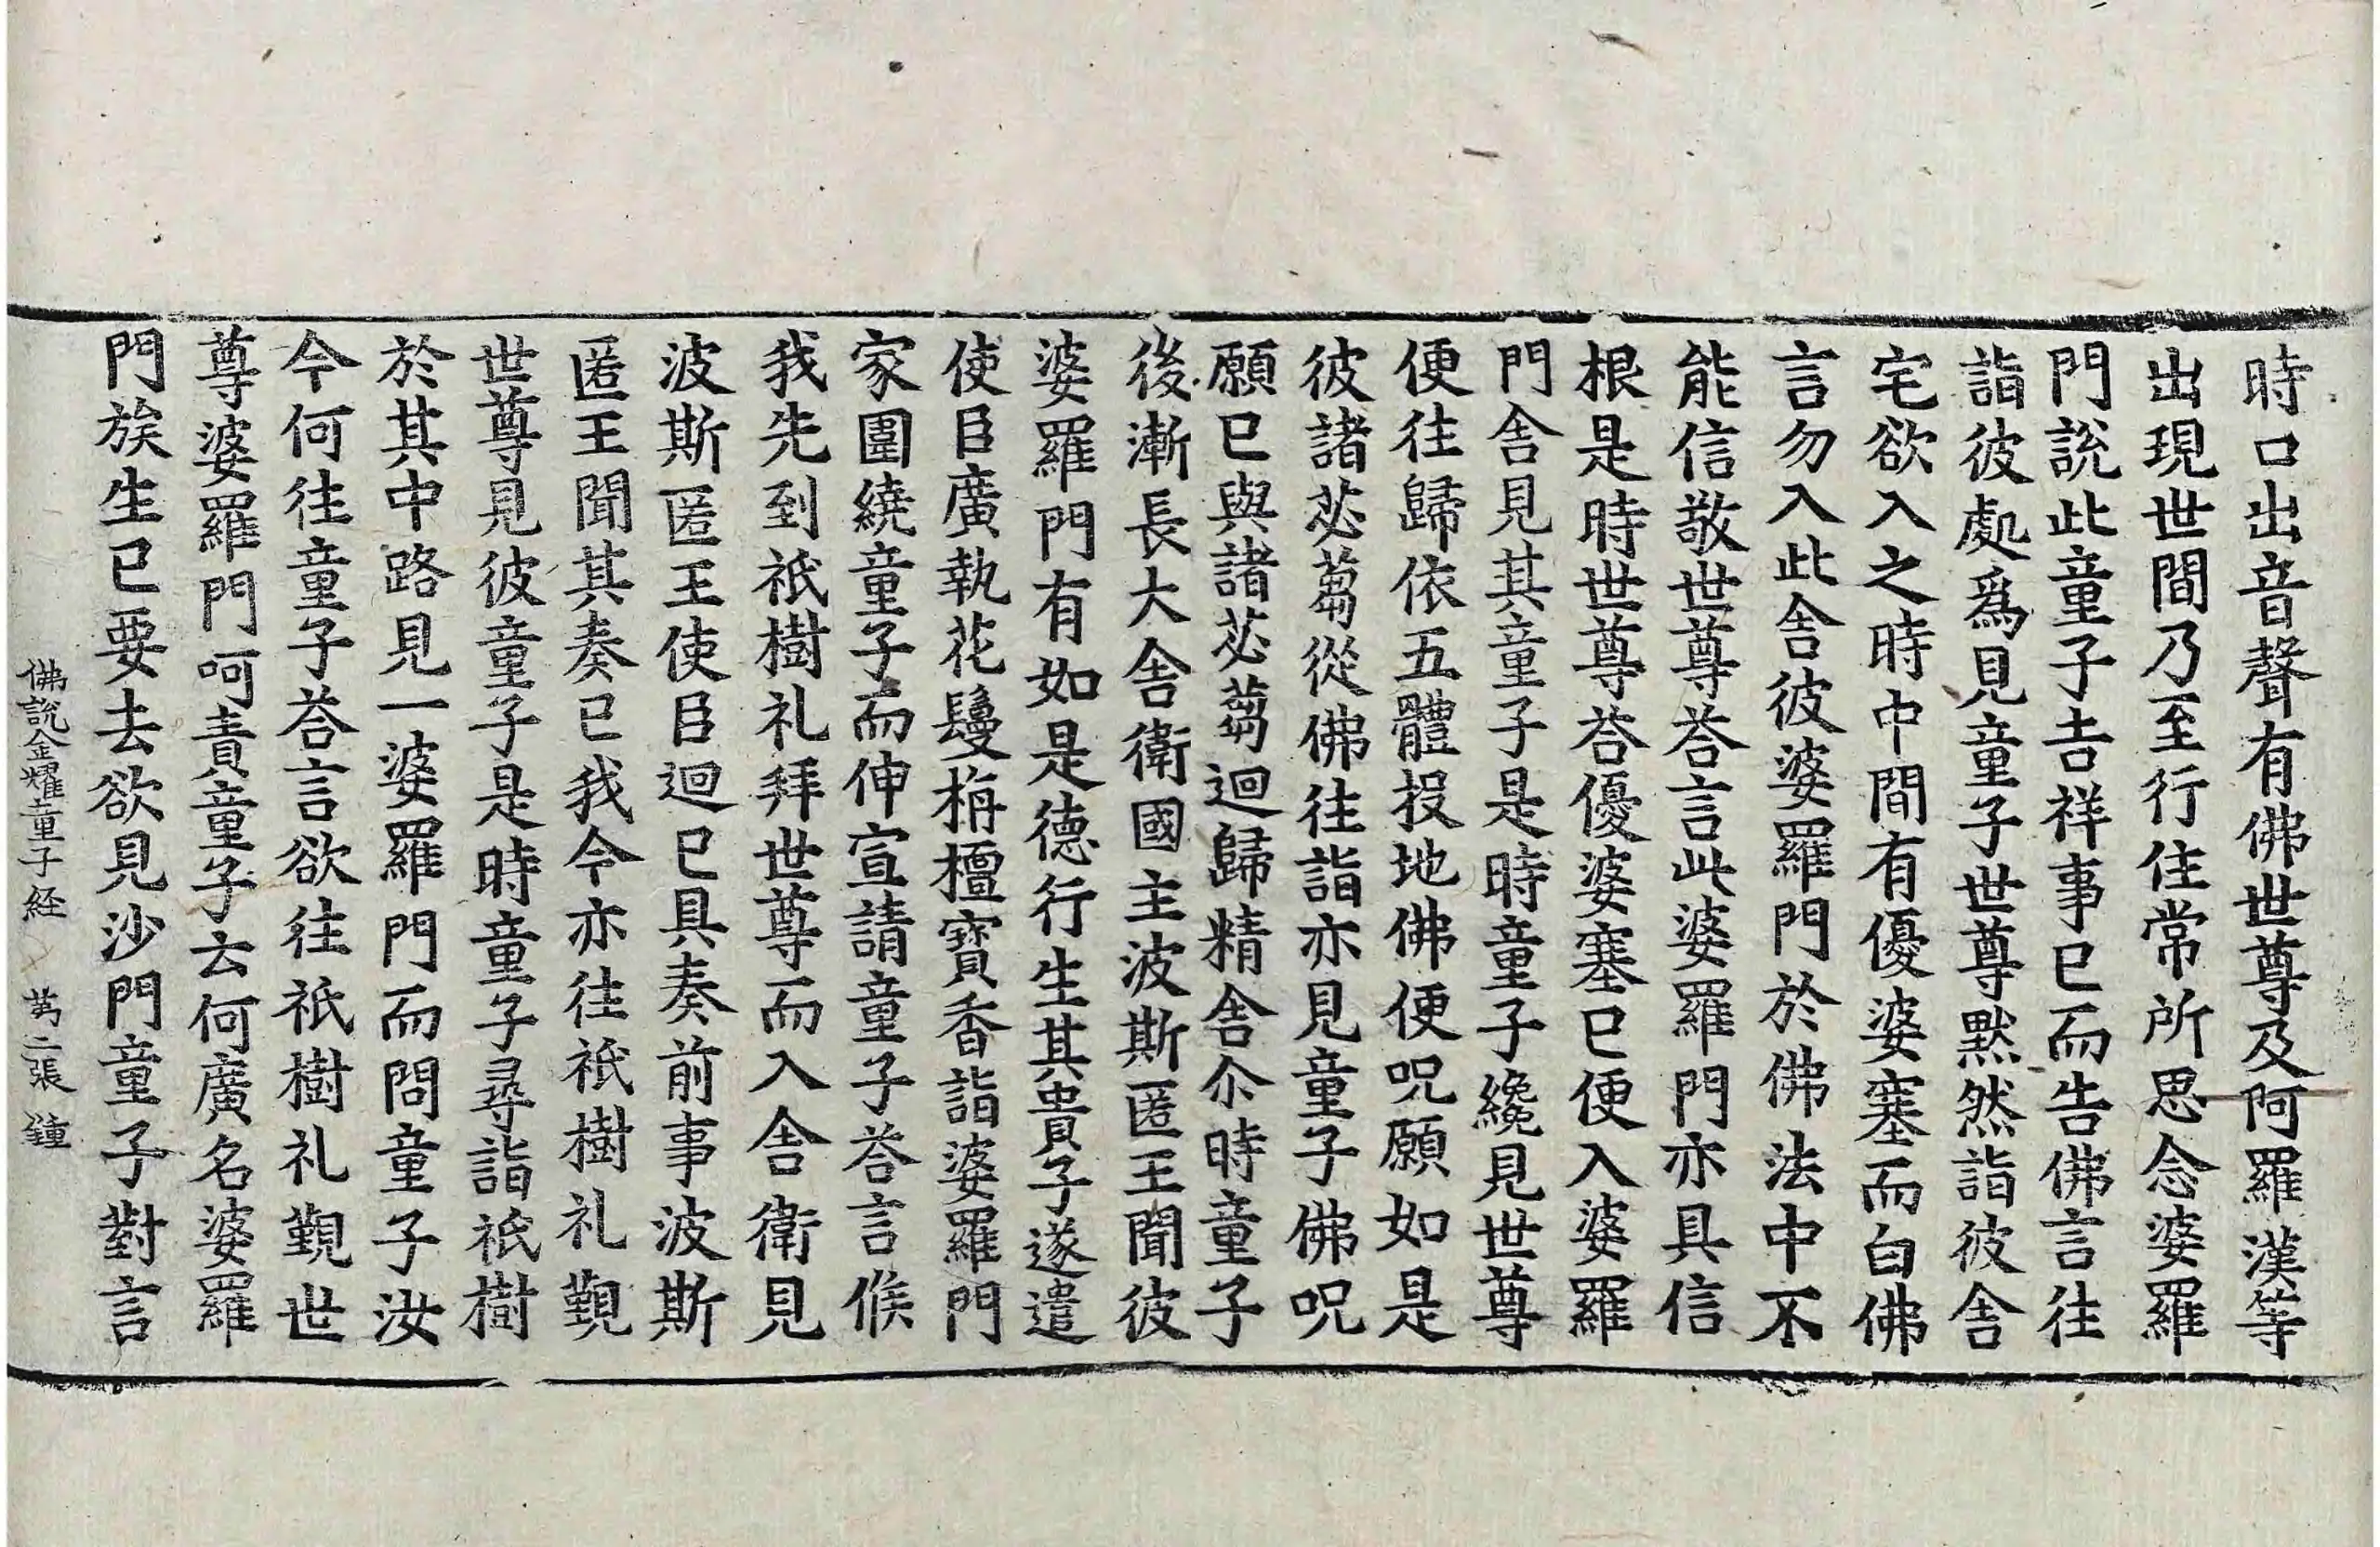 時口出音聲有佛世尊及阿羅漢等
出現世間乃至行住常所思念婆羅
門說此童子吉祥事已而告佛言往
詣彼處爲見童子世尊默然詣彼舍
宅欲入之時中間有優婆塞而白佛
言勿入此舍彼婆羅門於佛法中不
能信敬世尊荅言此婆羅門亦具信
根是時世尊荅優婆塞已便入婆羅
門舍見其童子是時童子纔見世尊
便往歸依五體投地佛便呪願如是
彼諸苾蒭從佛往詣亦見童子佛呪
願已與諸苾蒭迴歸精舍尒時童子
後漸長大舍衛國主波斯匿王聞彼
婆羅門有如是德行生其貴子遂遣
使臣廣執花鬘栴檀寶香詣婆羅門
家圍繞童子而伸宣請童子荅言候
我先到祇樹礼拜世尊而入舍衛見
波斯匿王使臣迴已具奏前事波斯
匿王聞其奏已我今亦往祇樹礼覲
世尊見彼童子是時童子尋詣祇樹
於其中路見一婆羅門而問童子汝
今何往童子荅言欲往祇樹礼覲世
尊婆羅門呵責童子云何廣名婆羅
門族生已要去欲見沙門童子對言
佛說金耀童子経 苐二張 鍾